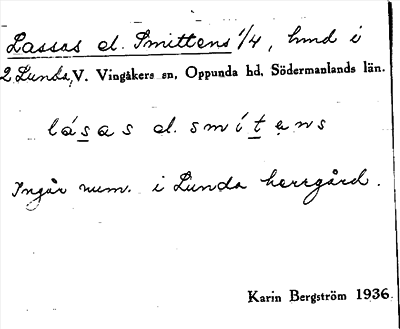 Lassas el. Smittens 1/4, hmd i
2 Lunda, V. Vingåkers sn, Oppunda hd, Södermanlands län.
lásas el. smítens
Ingår num. i Lunda herrgård.
Karin Bergström 1936.